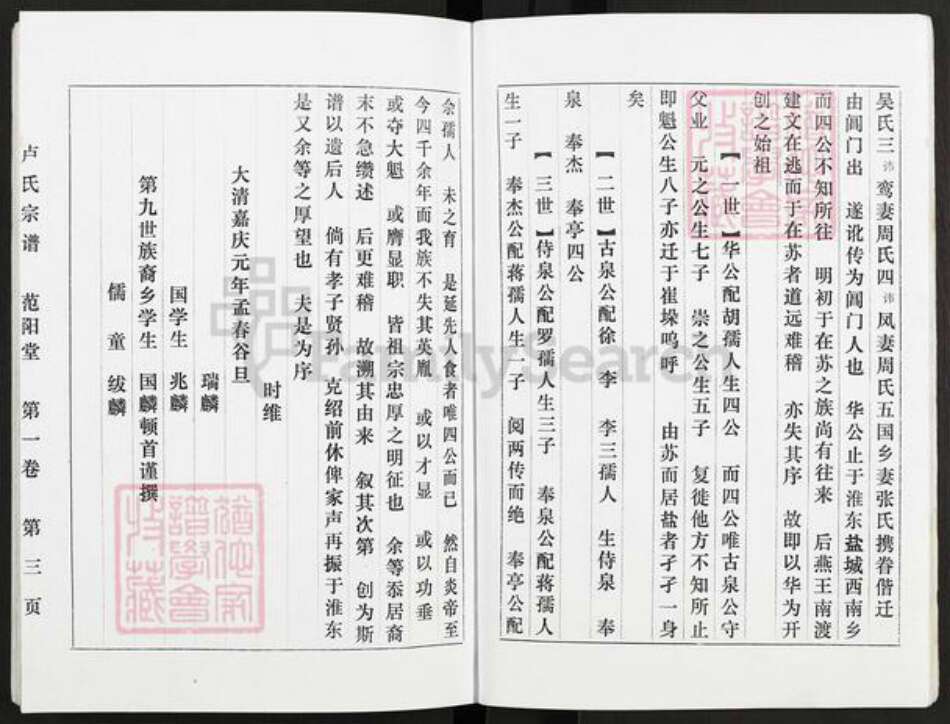 吴氏三讳鸾妻周氏四讳凤妻周氏五国乡妻张氏携眷偕迁
由阊门出 遂讹传为阊门人也 华公止于淮东盐城西南乡
而四公不知所往 明初于在苏之族尚有往来 后燕王南渡
建文在逃而于在苏者道远难稽 亦失其序 故即以华为开
创之始祖
【一世】华公配胡孺人生四公 而四公唯古泉公守
父业 元之公生七子 崇之公生五子 复徙他方不知所止
即魁公生八子亦迁于崔垛呜呼 由苏而居盐者孑孑一身
矣
【二世】古泉公配徐 李 李三孺人 生侍泉 奉
泉 奉杰 奉亭四公
【三世】侍泉公配罗孺人生三子 奉泉公配蒋孺人
生一子 奉杰公配蒋孺人生一子 阅两传而绝 奉亭公配
余孺人 未之育 是延先人食者唯四公而已 然自炎帝至
今四千余年而我族不失其英胤 或以才显 或以功垂
或夺大魁 或膺显职 皆祖宗忠厚之明征也 余等忝居裔
末不急缵述 后更难稽 故溯其由来 叙其次第 创为斯
谱以遗后人 倘有孝子贤孙 克绍前休俾家声再振于淮东
是又余等之厚望也 夫是为序
时维
大清嘉庆元年孟春谷旦
瑞麟
国学生 兆麟
第九世族裔乡学生 国麟顿首谨撰
儒童 绂麟
卢氏宗谱 范阳堂 第一卷 第三页
FamilySearch